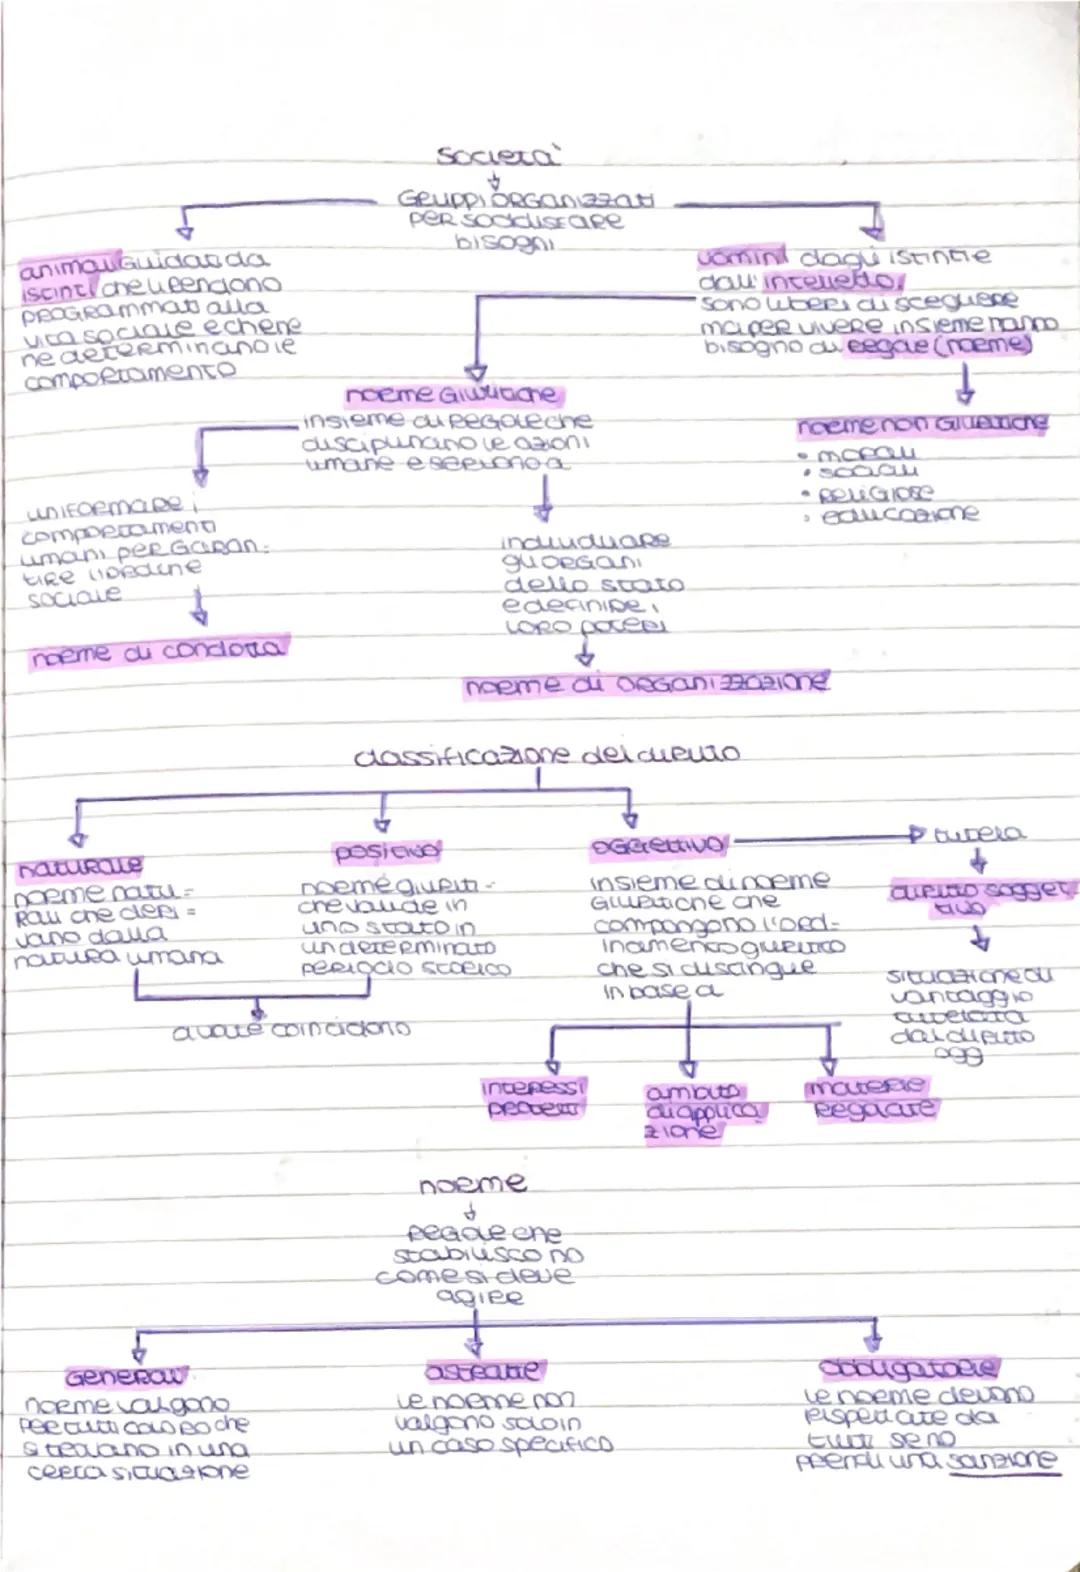 società
Gruppi organizzati
per soddisfare
bisogni
animali guidati da
istinti che li rendono
programmati alla
vita sociale e che ne
ne determinano le
comportamento
uomini dagli istinti e
dall'intelletto,
sono liberi di scegliere
ma per vivere insieme hanno
bisogno di regole (norme)
norme giuridiche
insieme di regole che
disciplinano le azioni
umane e servono a
norme non giuridiche
• morali
• sociali
• religiose
• educazione
uniformare i
comportamenti
umani per garan-
tire l'ordine
sociale
norme di condotta
individuare
gli organi
dello stato
e definire i
loro poteri
norme di organizzazione
classificazione del diritto
naturale
norme natu=
rali che deri=
vano dalla
natura umana
positivo
norme giuridi-
che valide in
uno stato in
un determinato
periodo storico
a volte coincidono
oggettivo
insieme di norme
giuridiche che
compongono l'ord-
inamento giuridico
che si distingue
in base a
tutela
diritto sogget
tivo
situazione di
vantaggio
tutelata
dal diritto
ogg
interessi
protetti
ambito
di applica
zione
materie
regolate
norme
regole che
stabiliscono
come si deve
agire
generali
norme valgono
per tutti coloro che
si trovano in una
certa situazione
astratte
le norme non
valgono solo in
un caso specifico
obbligatorie
le norme devono
rispettate da
tutti se no
prendi una sanzione